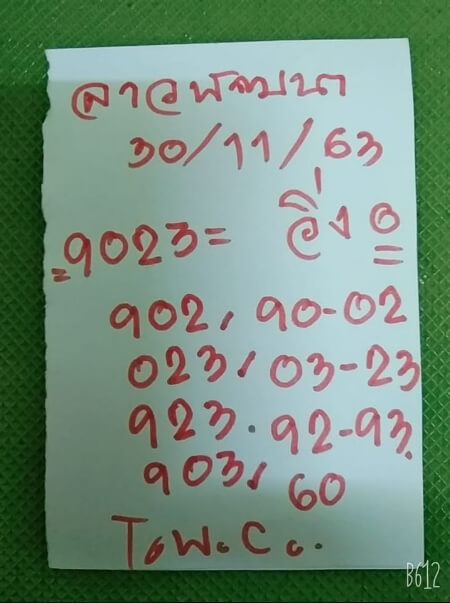 ลาวพัฒนา
30/11/63
=9023= วิ่ง 0
902, 90-02
023, 03-23
923. 92-93.
903, 60
T.W.C..
B612